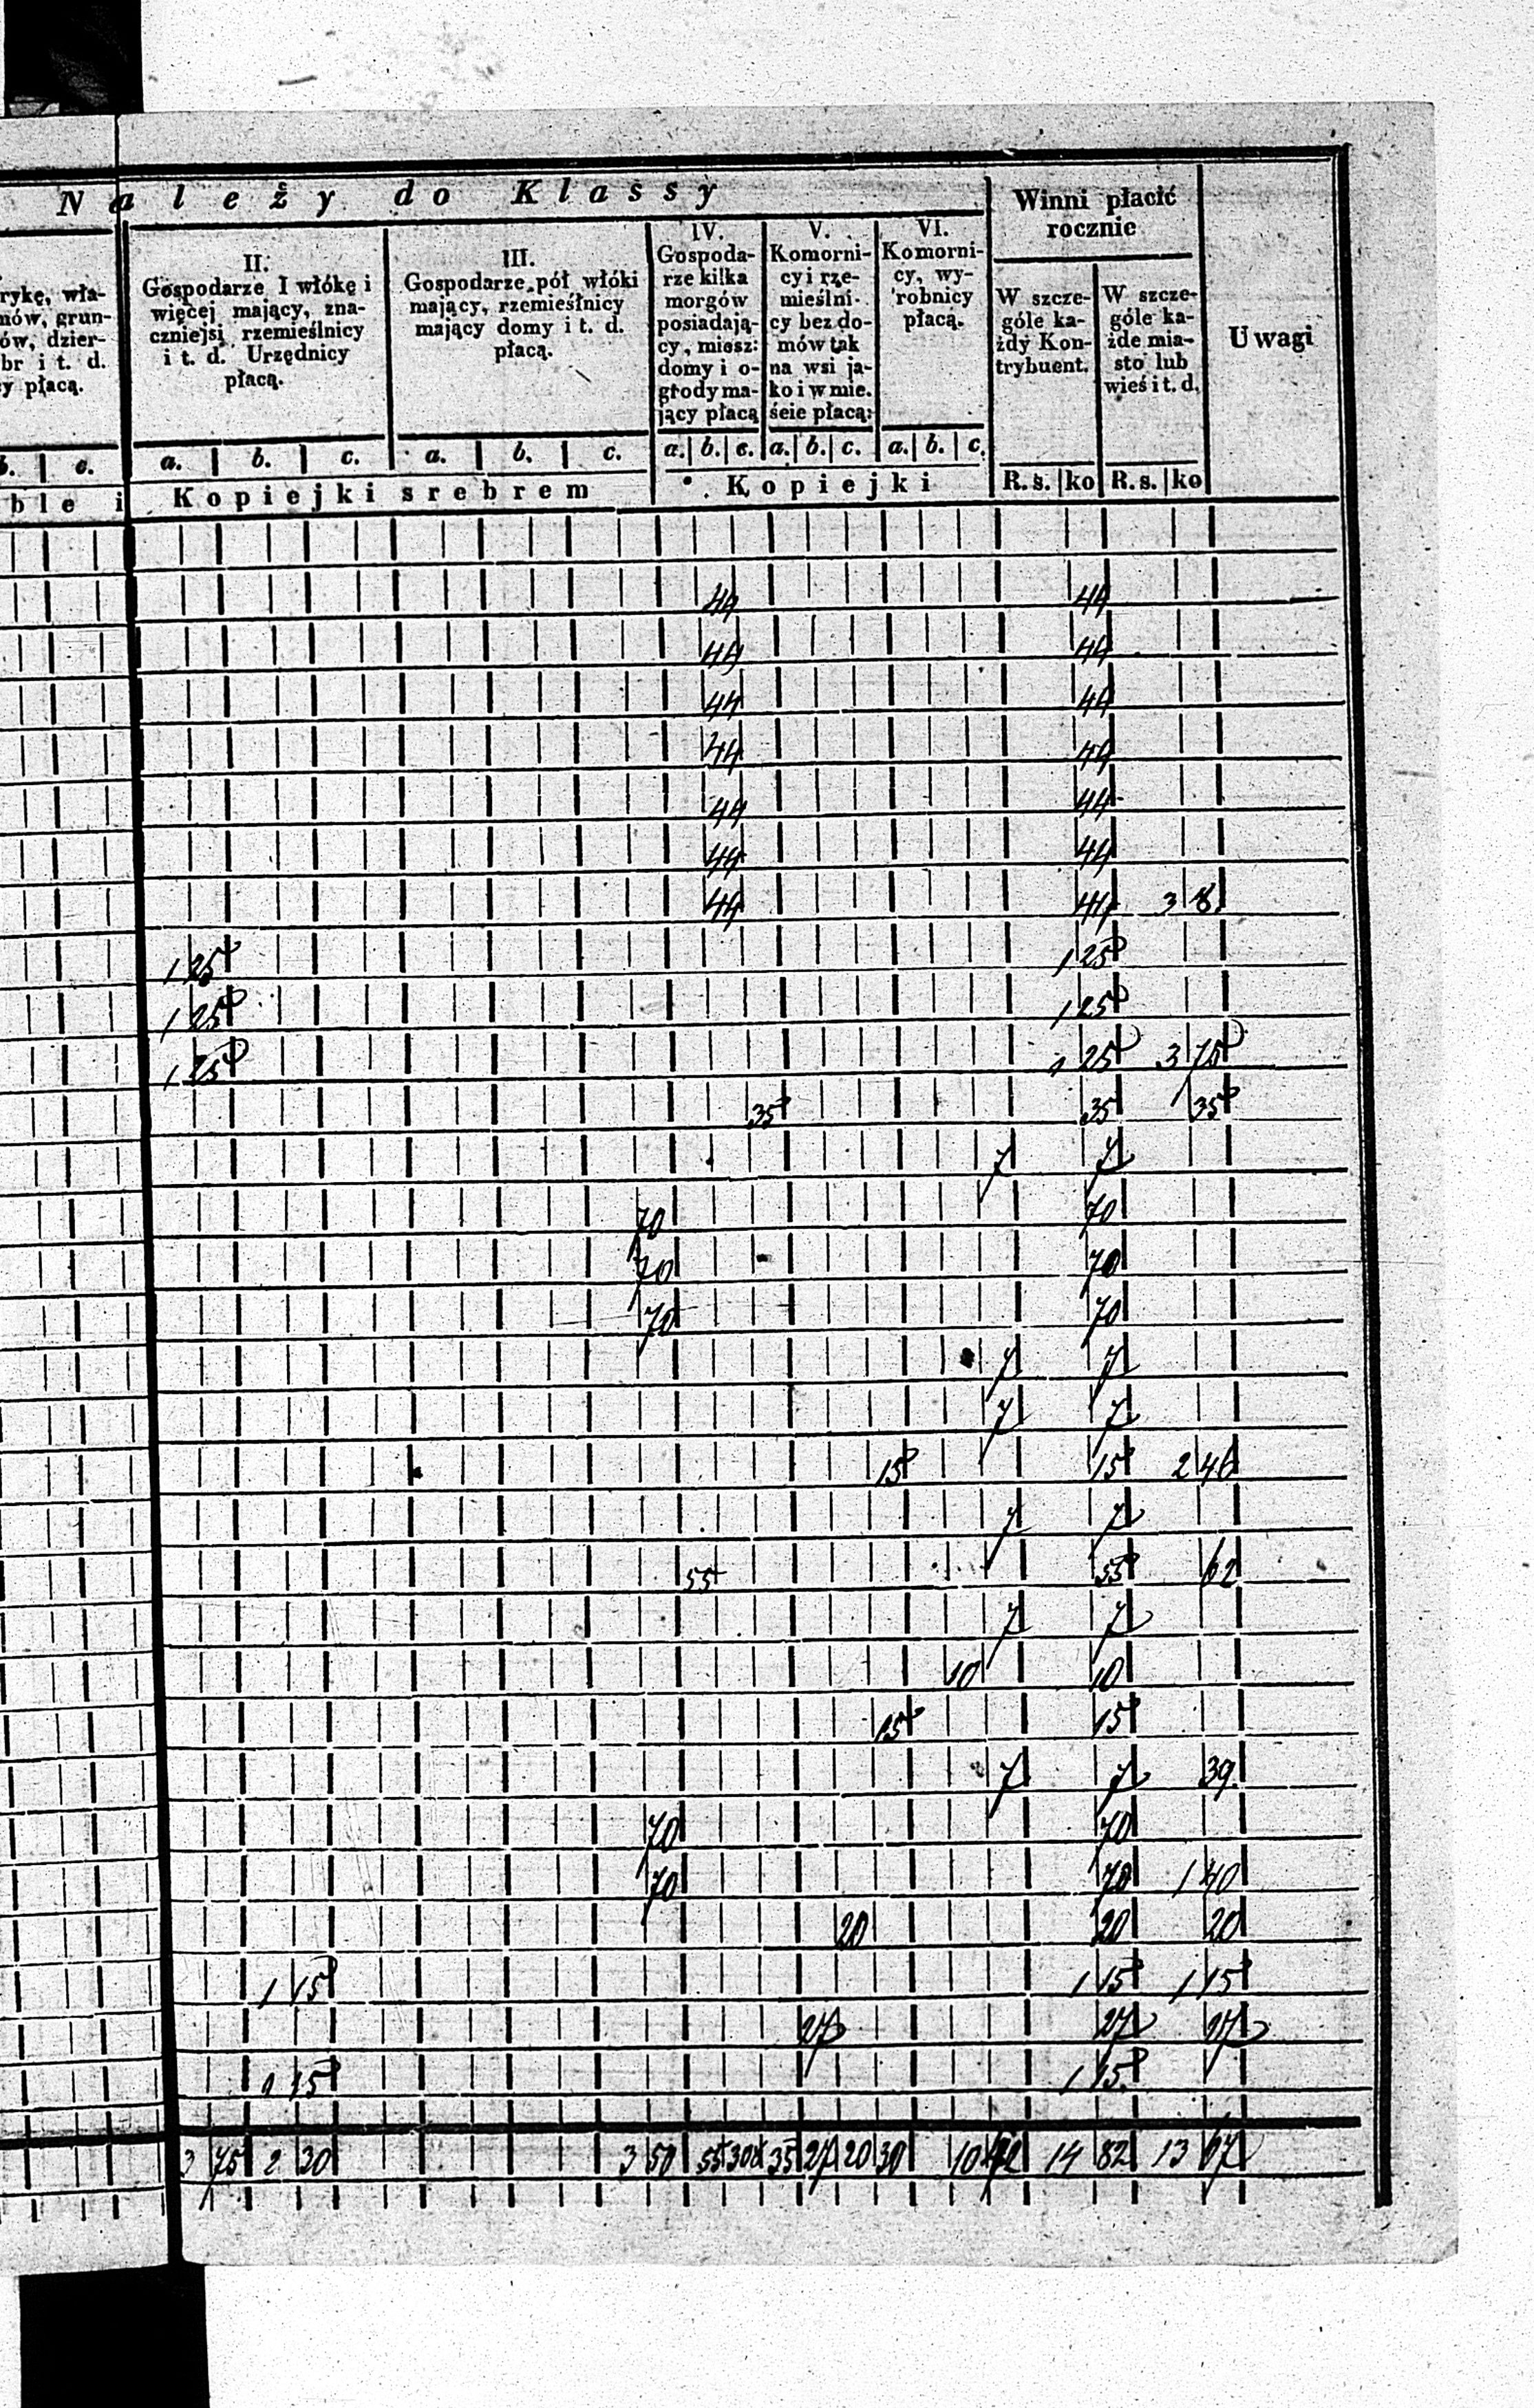 Należy do Klassy
Winni płacić rocznie
Uwagi
rykę, wła-
mów, grun-
ów, dzier-
br i t. d.
cy płacą.
II.
Gospodarze I włókę i
więcej mający, zna-
czniejsi rzemieślnicy
i t. d. Urzędnicy
płacą.
III.
Gospodarze pół włóki
mający, rzemieślnicy
mający domy i t. d.
płacą.
IV.
Gospoda-
rze kilka
morgów
posiadają-
cy, miesz:
domy i o-
grody ma-
jący płacą
V.
Komorni-
cy i rze-
mieślni-
cy bez do-
mów tak
na wsi ja-
ko i w mie-
ście płacą:
VI.
Komorni-
cy, wy-
robnicy
płacą.
W szcze-
góle ka-
żdy Kon-
trybuent.
W szcze-
góle ka-
żde mia-
sto lub
wieś i t. d.
b. c. a. b. c. a. b. c. a. b. c. a. b. c. a. b. c.
ble i Kopiejki srebrem Kopiejki R. s. ko R. s. ko
44 44
44 44
44 44
44 44
44 44
44 44
44 44 3 8
1 25 1 25
1 25 1 25
1 25 1 25 3 75
35 35 35
7 7
70 70
70 70
70 70
7 7
7 7
15 15 2 46
7 7
55 55 62
7 7
10 10
15 15
7 7 39
70 70
70 70 1 40
20 20 20
1 15 1 15 1 15
27 27 27
1 15 1 15
3 75 2 30 3 50 55 308 35 27 20 30 10 42 14 82 13 67